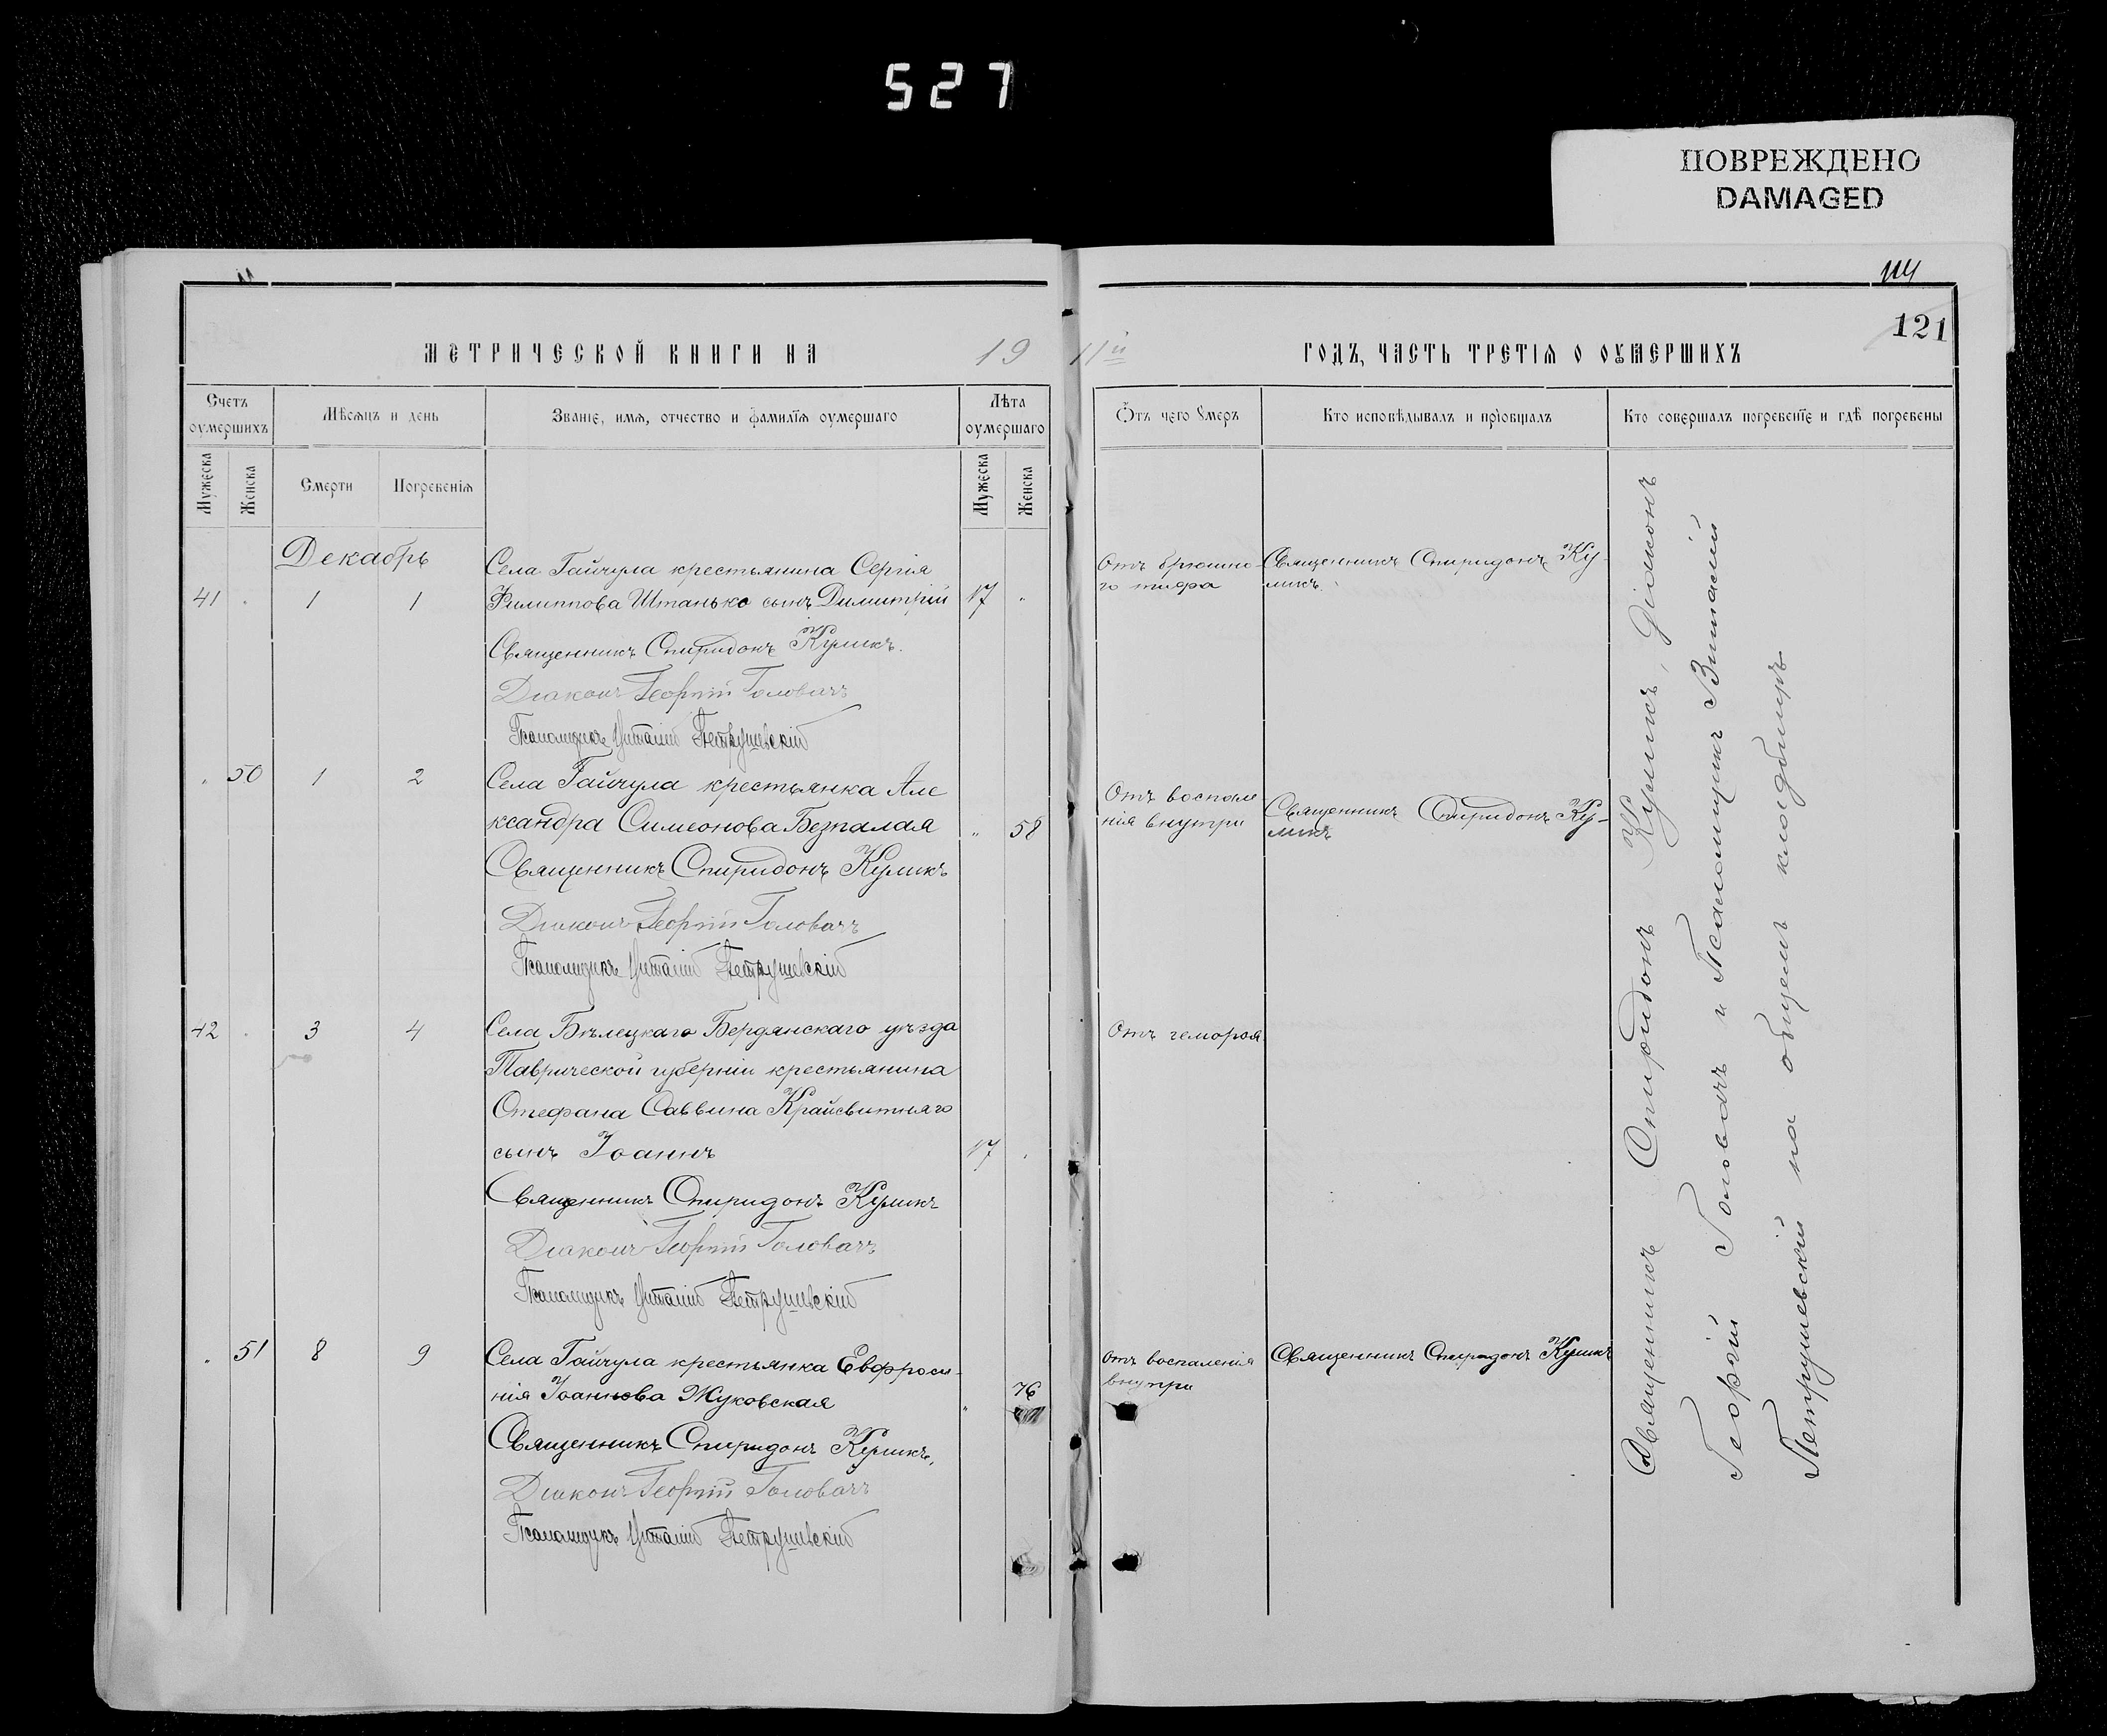 527
ПОВРЕЖДЕНО
DAMAGED
114
121
МЕТРИЧЕСКОЙ КНИГИ НА 19 11й ГОДЪ, ЧАСТЬ ТРЕТІЯ О ОУМЕРШИХЪ
Счетъ оумершихъ
Мѣсяцъ и день
Званіе, имя, отчество и фамилія оумершаго
Лѣта оумершаго
Отъ чего умеръ
Кто исповѣдывалъ и пріобщалъ
Кто совершалъ погребеніе и гдѣ погребены
Мужеска
Женска
Смерти
Погребенія
Мужеска
Женска
Декабрь
41 1 1
Села Гайчула крестьянина Сергія
Филиппова Штанько сынъ Димитрій 17
Священникъ Спиридонъ Куликъ.
Діаконъ Георгій Головачъ
Псаломщикъ Виталій Петрушевскій
Отъ брюшно-
го тифа
Священникъ Спиридонъ Ку-
ликъ.
50 1 2
Села Гайчула крестьянка Але
ксандра Симеонова Безпалая 58
Священникъ Спиридонъ Куликъ
Діаконъ Георгій Головачъ
Псаломщикъ Виталій Петрушевскій
Отъ воспале
нія внутри
Священникъ Спиридонъ Ку-
ликъ
42 3 4
Села Бѣлецкаго Бердянскаго уѣзда
Таврической губерніи крестьянина
Стефана Саввина Крайсвитняго
сынъ Іоаннъ 17
Священникъ Спиридонъ Куликъ
Діаконъ Георгій Головачъ
Псаломщикъ Виталій Петрушевскій
Отъ гемороя
51 8 9
Села Гайчула крестьянка Евфроси-
нія Іоаннова Жуковская 76
Священникъ Спиридонъ Куликъ,
Діаконъ Георгій Головачъ
Псаломщикъ Виталій Петрушевскій
Отъ воспаленія
внутри
Священникъ Спиридонъ Куликъ
Священникъ Спиридонъ Куликъ, Діаконъ
Георгій Головачъ и Псаломщикъ Виталій
Петрушевскій на общемъ кладбищѣ